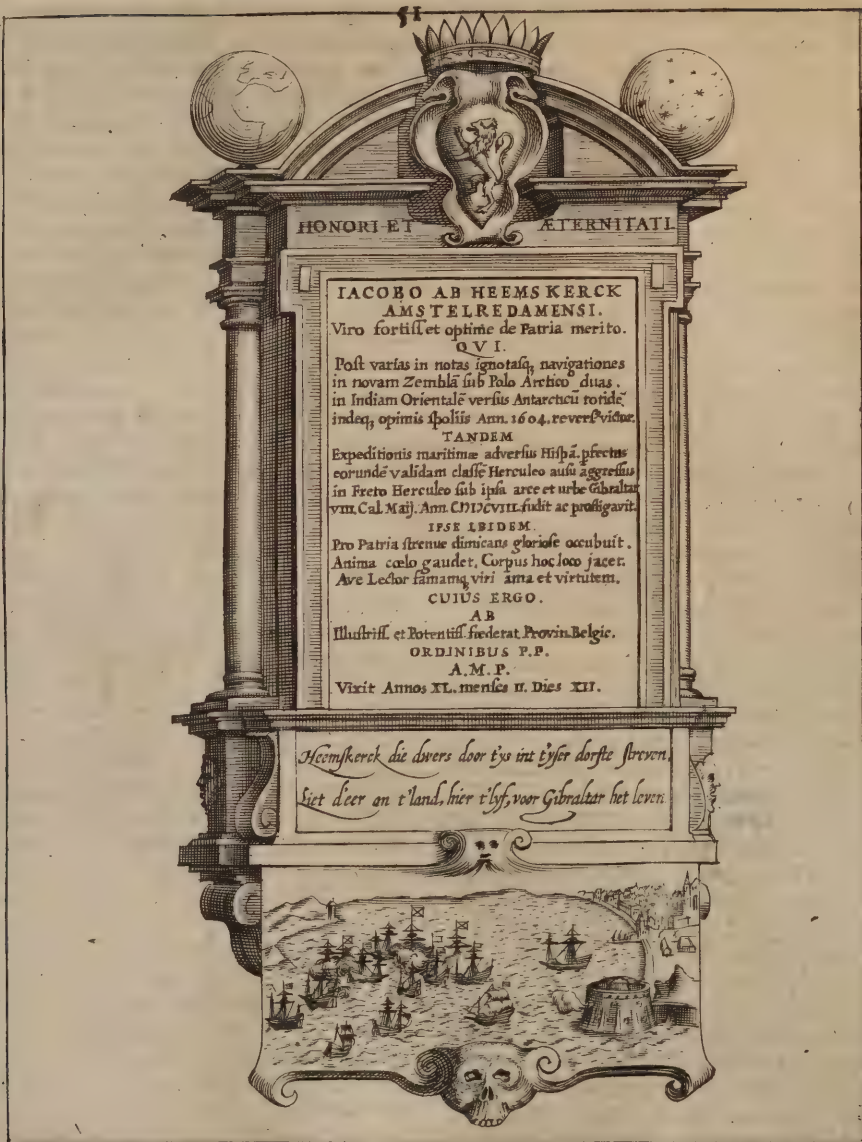 51
HONORI ET ÆTERNITATI.
IACOBO AB HEEMSKERCK
AMSTELREDAMENSI.
Viro fortiſſ et optime de Patria merito.
QVI.
Poſt varias in notas ignotasq, navigationes
in novam Zemblã ſub Polo Arctico duas.
in Indiam Orientalē verſus Antarcticũ totidē
indeq, opimis ſpoliis Ann. 1604. reverſ9 victor.
TANDEM
Expeditionis maritimæ adverſus Hiſpã. pfectus
eorundē validam claſſē Herculeo auſu aggreſſus
in Freto Herculeo ſub ipſa arce et urbe Gibraltar
VIII. Cal. Maij. Ann. CIƆIƆCVIII. fudit ac profligavit.
IPSE IBIDEM.
Pro Patria ſtrenue dimicans glorioſe occubuit.
Anima cœlo gaudet, Corpus hoc loco jacet.
Ave Lector famamq, viri ama et virtutem.
CUIUS ERGO.
AB
Illuſtriſſ. et Potentiſſ. fœderat. Provin. Belgic.
ORDINIBUS P.P.
A.M.P.
Vixit Annos XL. menſes II. Dies XII.
Heemſkerck die dwers door t'ys int t'yſer dorſte ſtreven,
Liet d'eer an t'land, hier t'lyf, voor Gibraltar het leven